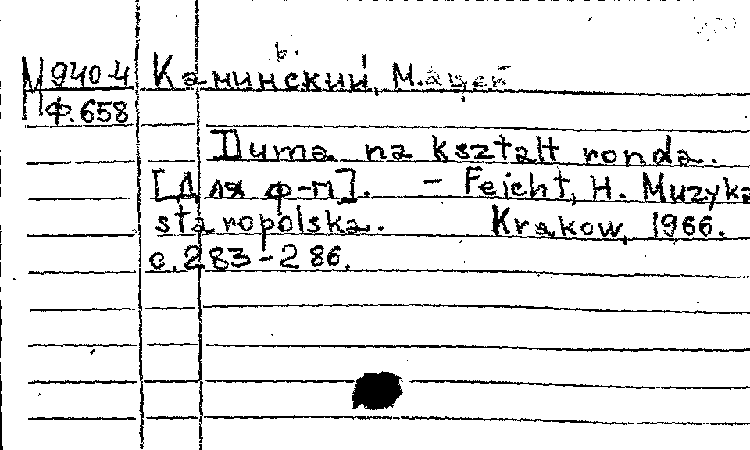 М 940-4 Каминьский, Мацей
Ф.658
Duma na kształt ronda.
[Для ф-п]. - Feicht, H. Muzyka
staropolska. Krakow, 1966.
с.283-286.